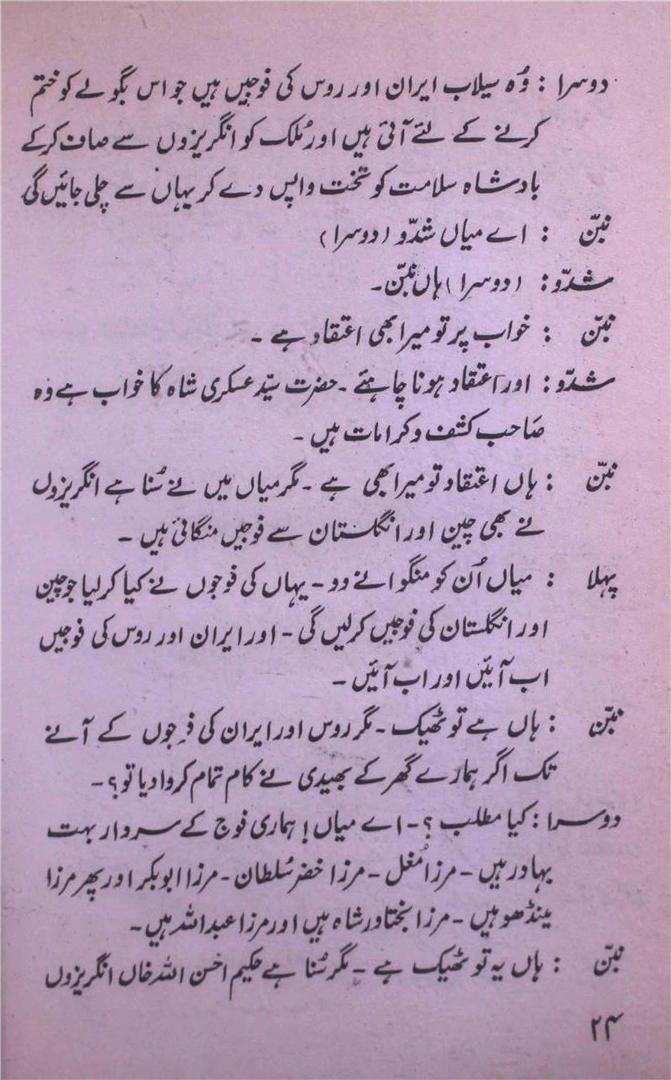 دوسرا : وُہ سیلاب ایران اور روس کی فوجیں ہیں جو اس بگولے کو ختم
کرنے کے لئے آئی ہیں اور مُلک کو انگریزوں سے صاف کر کے
بادشاہ سلامت کو تخت واپس دے کر یہاں سے چلی جائیں گی
نبّن : اے میاں شدّو (دوسرا)
شدّو : (دوسرا) ہاں نبّن۔
نبّن : خواب پر تو میرا بھی اعتقاد ہے ۔
شدّو : اور اعتقاد ہونا چاہئے ۔ حضرت سیّد عسکری شاہ کا خواب ہے وُہ
صاحب کشف و کرامات ہیں ۔
نبّن : ہاں اعتقاد تو میرا بھی ہے ۔ مگر میاں میں نے سُنا ہے انگریزوں
نے بھی چین اور انگلستان سے فوجیں منگائی ہیں ۔
پہلا : میاں اُن کو منگوانے دو ۔ یہاں کی فوجوں نے کیا کر لیا جو چین
اور انگلستان کی فوجیں کر لیں گی ۔ اور ایران اور روس کی فوجیں
اب آئیں اور اب آئیں ۔
نبّن : ہاں ہے تو ٹھیک ۔ مگر روس اور ایران کی فوجوں کے آنے
تک اگر ہمارے گھر کے بھیدی نے کام تمام کروا دیا تو ؟ ۔
دوسرا : کیا مطلب ؟ ۔ اے میاں ! ہماری فوج کے سردار بہت
بہادر ہیں ۔ مرزا مغل ۔ مرزا خضر سُلطان ۔ مرزا ابوبکر اور پھر مرزا
مینڈھو ہیں ۔ مرزا بختاور شاہ ہیں اور مرزا عبداللہ ہیں ۔
نبّن : ہاں یہ تو ٹھیک ہے ۔ مگر سُنا ہے حکیم احسن اللہ خاں انگریزوں
۲۴